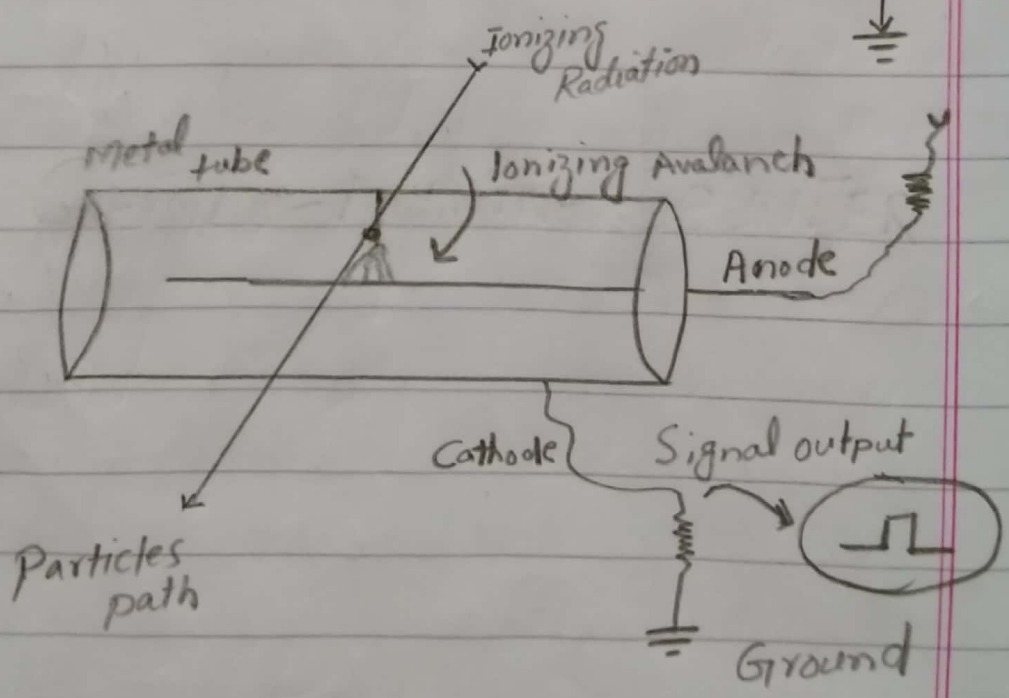 Ionizing
Radiation
Metal
tube
Ionizing Avalanch
Anode
Cathode
Signal output
Particles
path
Ground